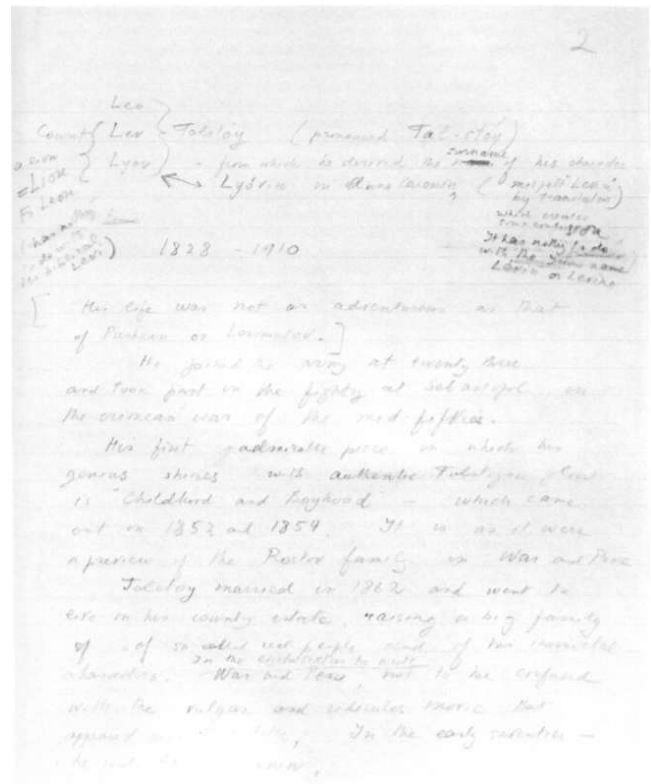 2
Leo
Count { Lev Tolstoy (pronounced Tal-stóy)
Lyov - from which he derived the surname of his character
Lyóvin in Anna Karenin (misspelt "Levin"
by translators)
a lion
= Lion
Fr Leon
(has nothing
to do with
the biblical
Levi)
which creates
some confusion
It has nothing to do
with the name
Levin or Levine
1828 1910
[ His life was not as adventurous as that
of Pushkin or Lermontov. ]
He joined the army at twenty three
and took part in the fighting at Sebastopol in
the crimean war of the mid-fifties.
His first admirable piece in which his
genius shines with authentic Tolstoyan
is "Childhood and Boyhood" - which came
out in 1852 and 1854. It is as it were
a preview of the Rostov family in War and Peace
Tolstoy married in 1862 and went to
live in his country estate, raising a big family
of of so called real people and of his immortal
characters. In the eighteen sixties he wrote
War and Peace, not to be confused
with the vulgar and ridiculous movie that
appeared title, In the early seventies -
he